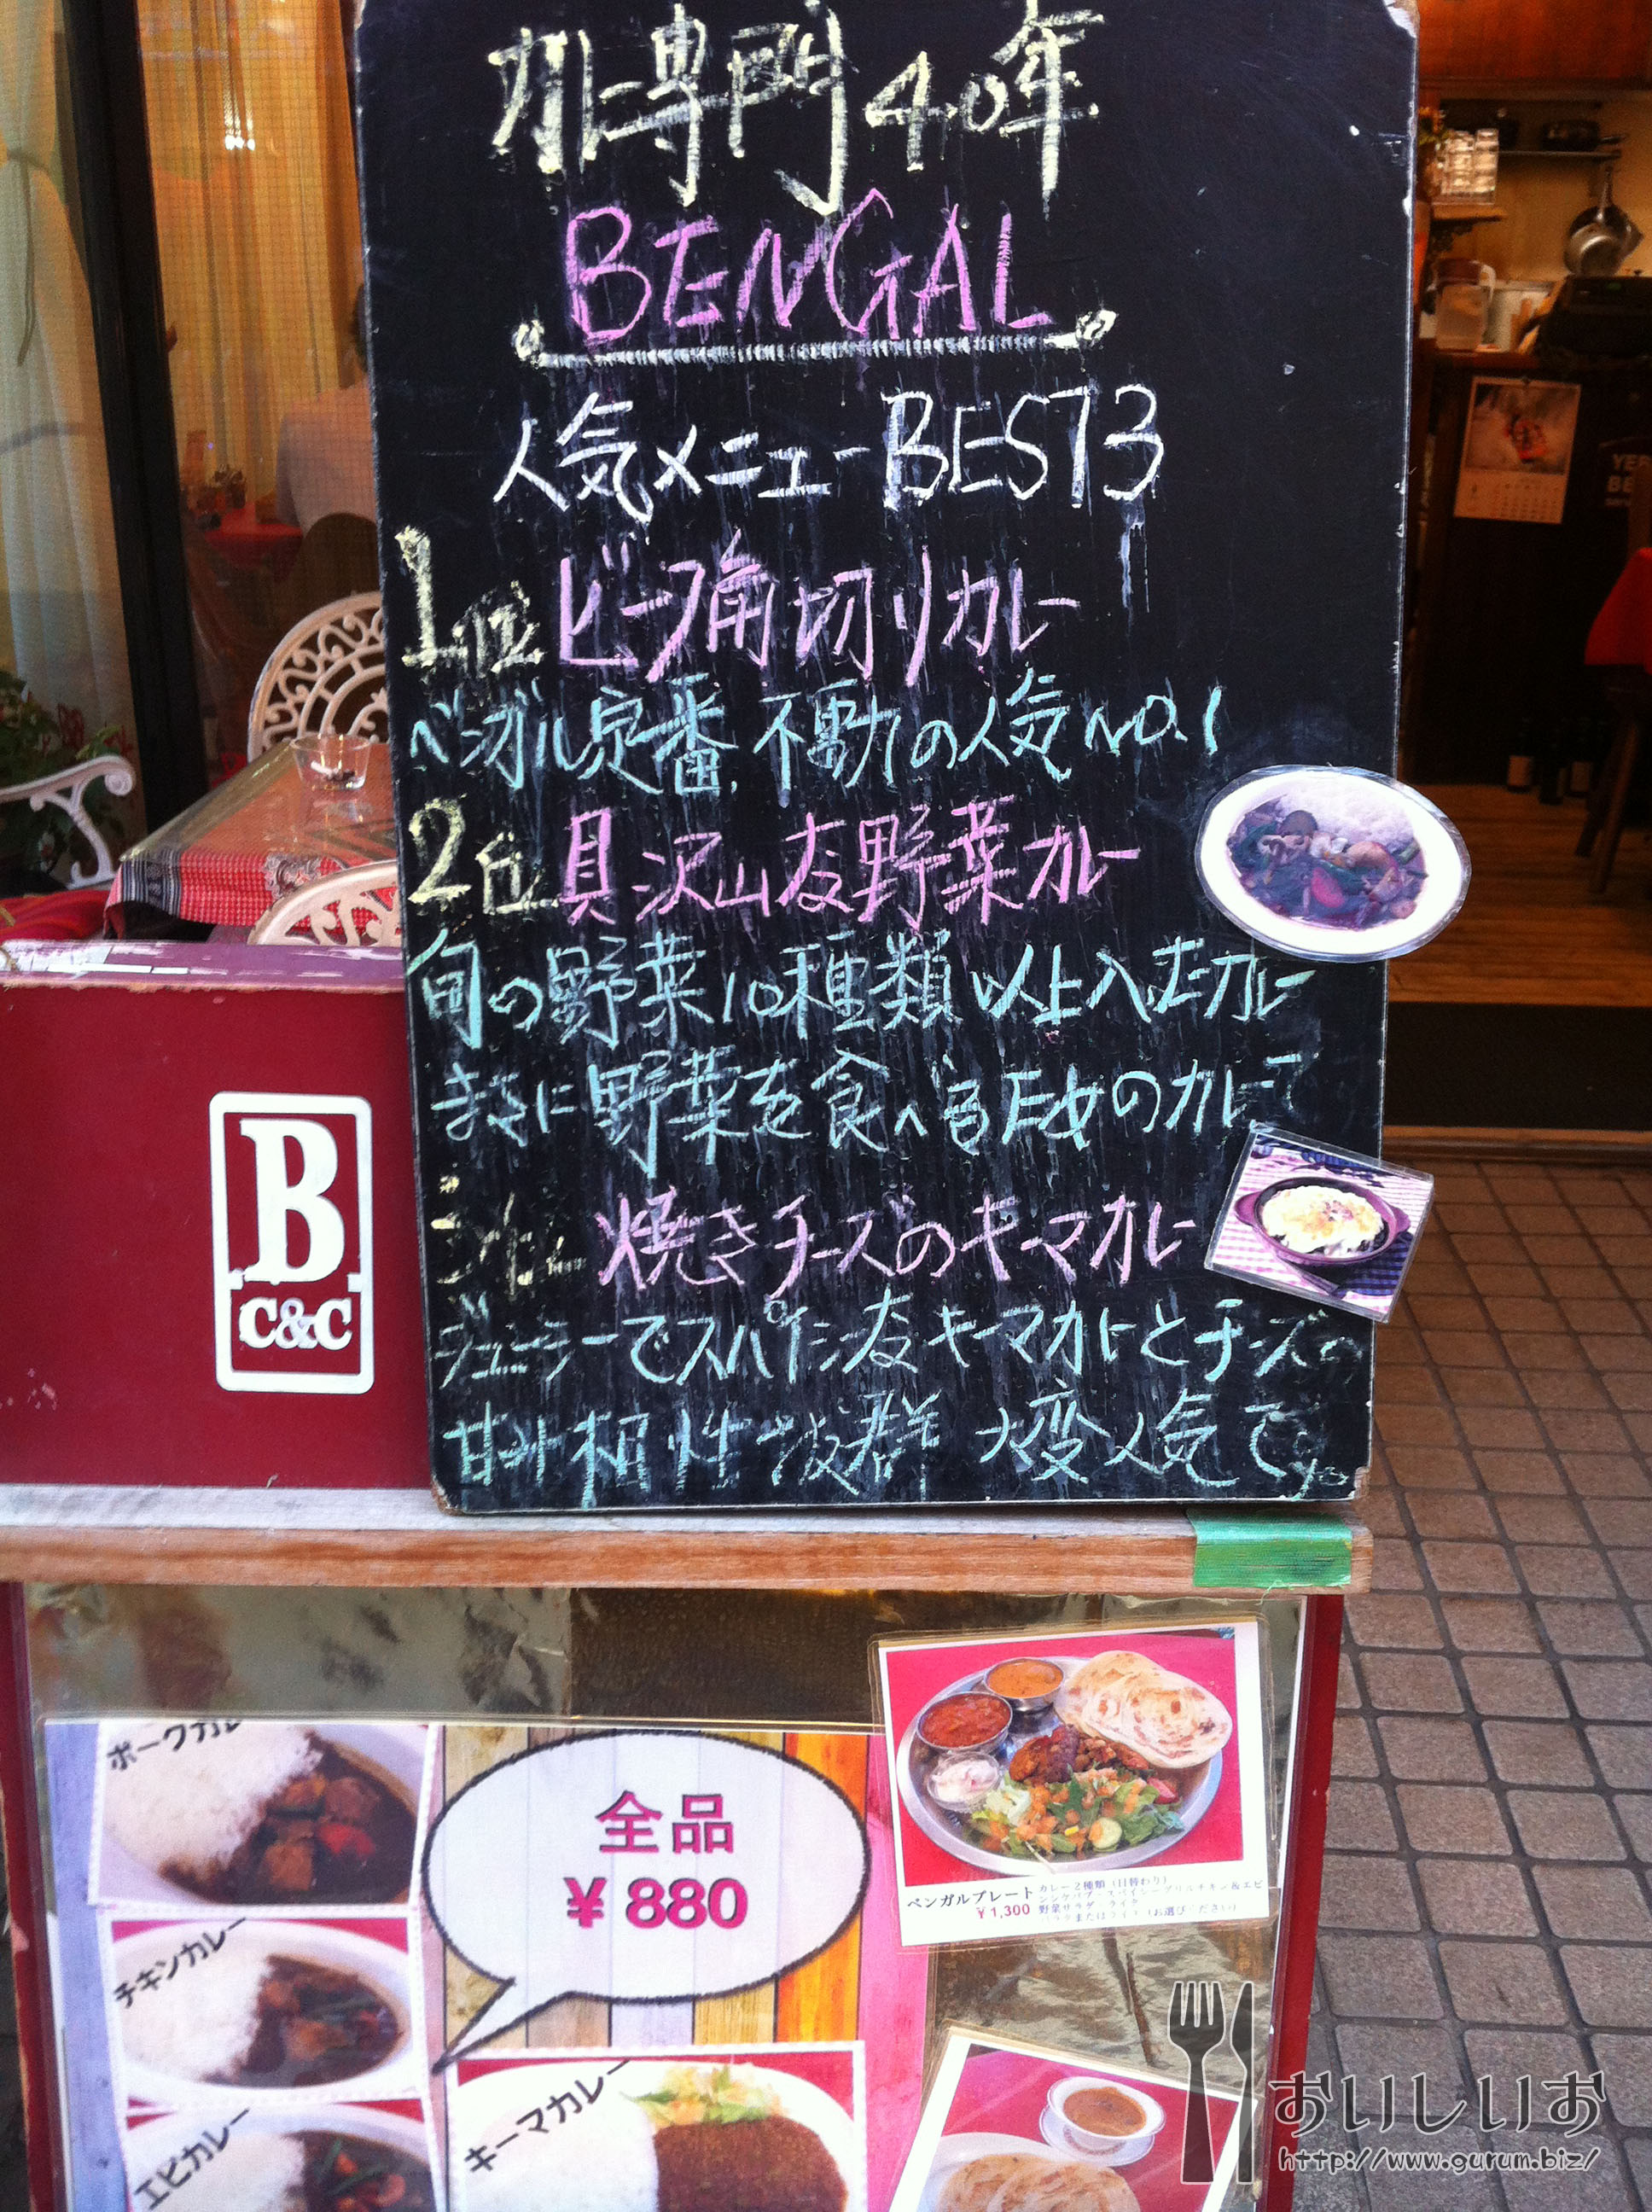 カレー専門40年
BENGAL
人気メニューBEST3
1位 ビーフ角切りカレー
ベンガル定番、不動の人気NO.1
2位 具沢山な野菜カレー
旬の野菜10種類以上入ったカレー
まさに野菜を食べる為のカレーで
焼きチーズのキーマカレー
ジューシーでスパイシーなキーマカレーとチーズの
甘み相性抜群 大変人気です
B
C&C
ポークカレ
全品
¥880
チキンカレー
エビカレー
キーマカレー
ベンガルプレート
¥1,300
カレー2種類(日替わり)
おいしいお
http://www.gurum.biz/